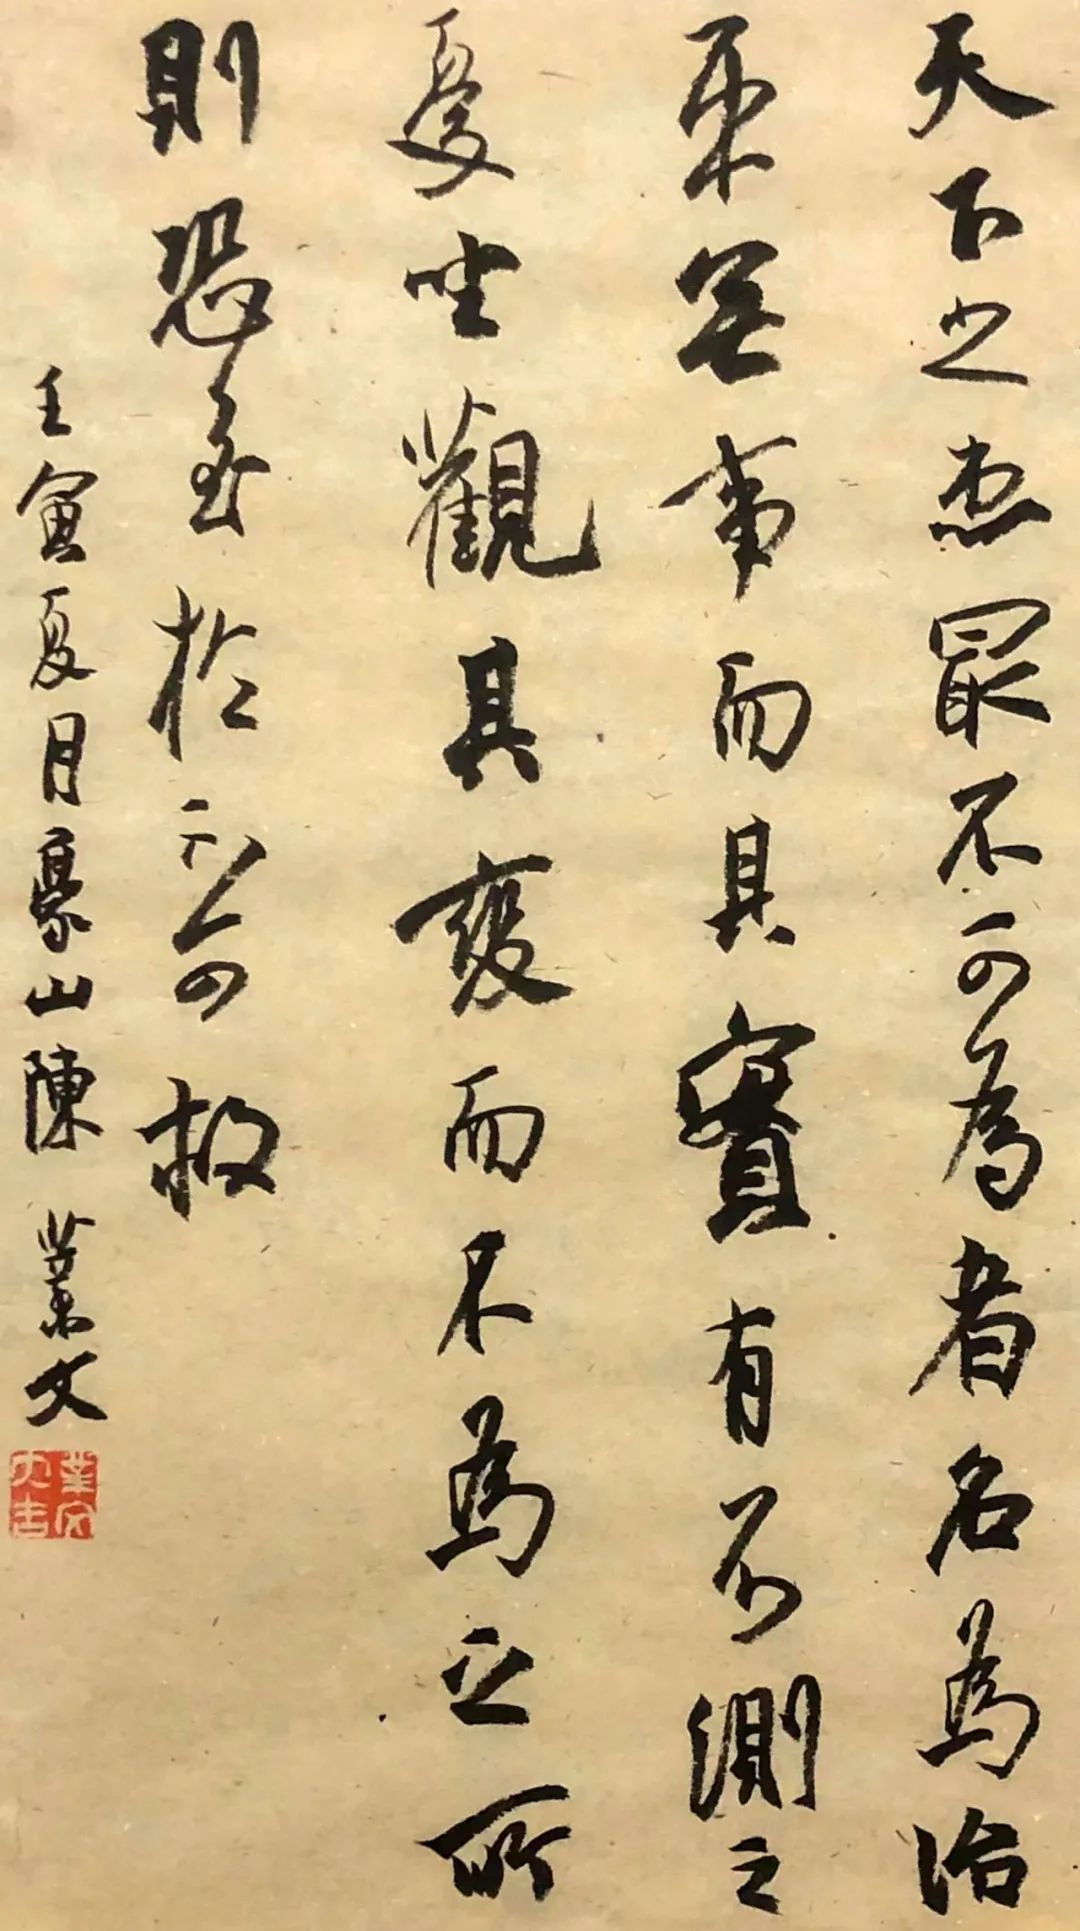 天下之患最不可為者名為治
平無事而其實有不測之
憂坐觀其變而不為之所
則恐至於不可救
壬寅夏月豪山陳業文
業文大吉